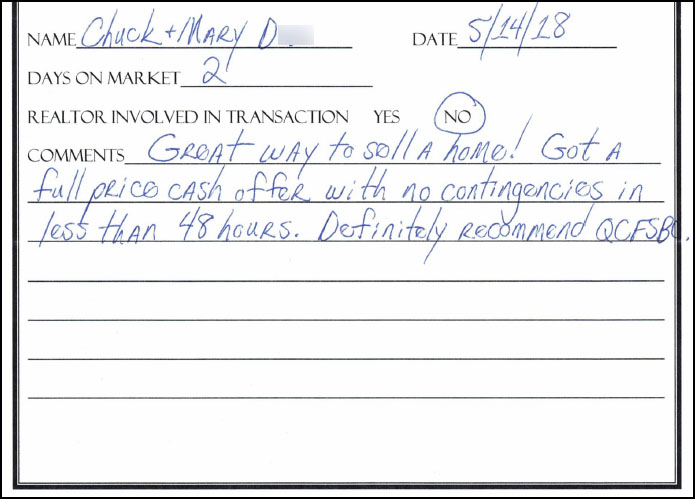 NAME Chuck + MARY D
DATE 5/14/18
DAYS ON MARKET 2
REALTOR INVOLVED IN TRANSACTION YES NO
COMMENTS Great way to sell a home! Got a
full price cash offer with no contingencies in
less than 48 hours. Definitely recommend QCFSBO.